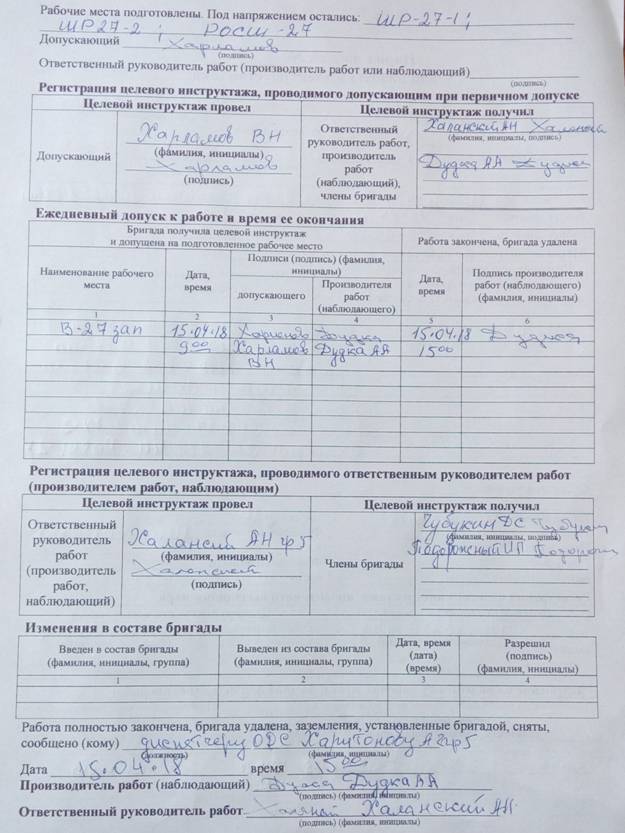 Рабочие места подготовлены. Под напряжением остались: ШР-27-1;
ШР27-2 ; РОСШ-27
Допускающий Харламов
(подпись)
Ответственный руководитель работ (производитель работ или наблюдающий)
(подпись)
Регистрация целевого инструктажа, проводимого допускающим при первичном допуске
Целевой инструктаж провел
Целевой инструктаж получил
Допускающий
Харламов ВН
(фамилия, инициалы)
Харламов
(подпись)
Ответственный руководитель работ, производитель работ (наблюдающий), члены бригады
Халанский АН
(фамилия, инициалы, подпись)
Дудка АА Дудка
Ежедневный допуск к работе и время ее окончания
Бригада получила целевой инструктаж
и допущена на подготовленное рабочее место
Работа закончена, бригада удалена
Наименование рабочего места
Дата, время
Подписи (подпись) (фамилия, инициалы)
допускающего
Производителя работ (наблюдающего)
Дата, время
Подпись производителя работ (наблюдающего) (фамилия, инициалы)
1 2 3 4 5 6
В-27 зап 15.04.18 Харламов Дудка 15.04.18 Дудка
9 00 Харламов ВН Дудка АА 15 00
Регистрация целевого инструктажа, проводимого ответственным руководителем работ
(производителем работ, наблюдающим)
Целевой инструктаж провел
Целевой инструктаж получил
Ответственный руководитель работ (производитель работ, наблюдающий)
Халанский АН гр5
(фамилия, инициалы)
(подпись)
Члены бригады
Чубукин ДС
(фамилия, инициалы, подпись)
Подорожный ИП
Изменения в составе бригады
Введен в состав бригады (фамилия, инициалы, группа)
Выведен из состава бригады (фамилия, инициалы, группа)
Дата, время (дата) (время)
Разрешил (подпись) (фамилия, инициалы)
1 2 3 4
Работа полностью закончена, бригада удалена, заземления, установленные бригадой, сняты,
сообщено (кому) диспетчеру ОДС Харитонову А гр5
(должность) (фамилия, инициалы)
Дата 15.04.18 время 15 00
Производитель работ (наблюдающий) Дудка Дудка АА
(подпись) (фамилия, инициалы)
Ответственный руководитель работ Халанский АН
(подпись) (фамилия, инициалы)